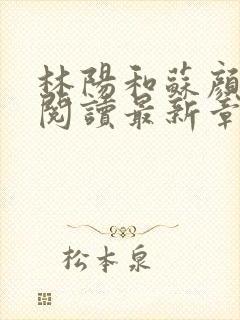 林陽和蘇顏
閱讀最新章
松本泉